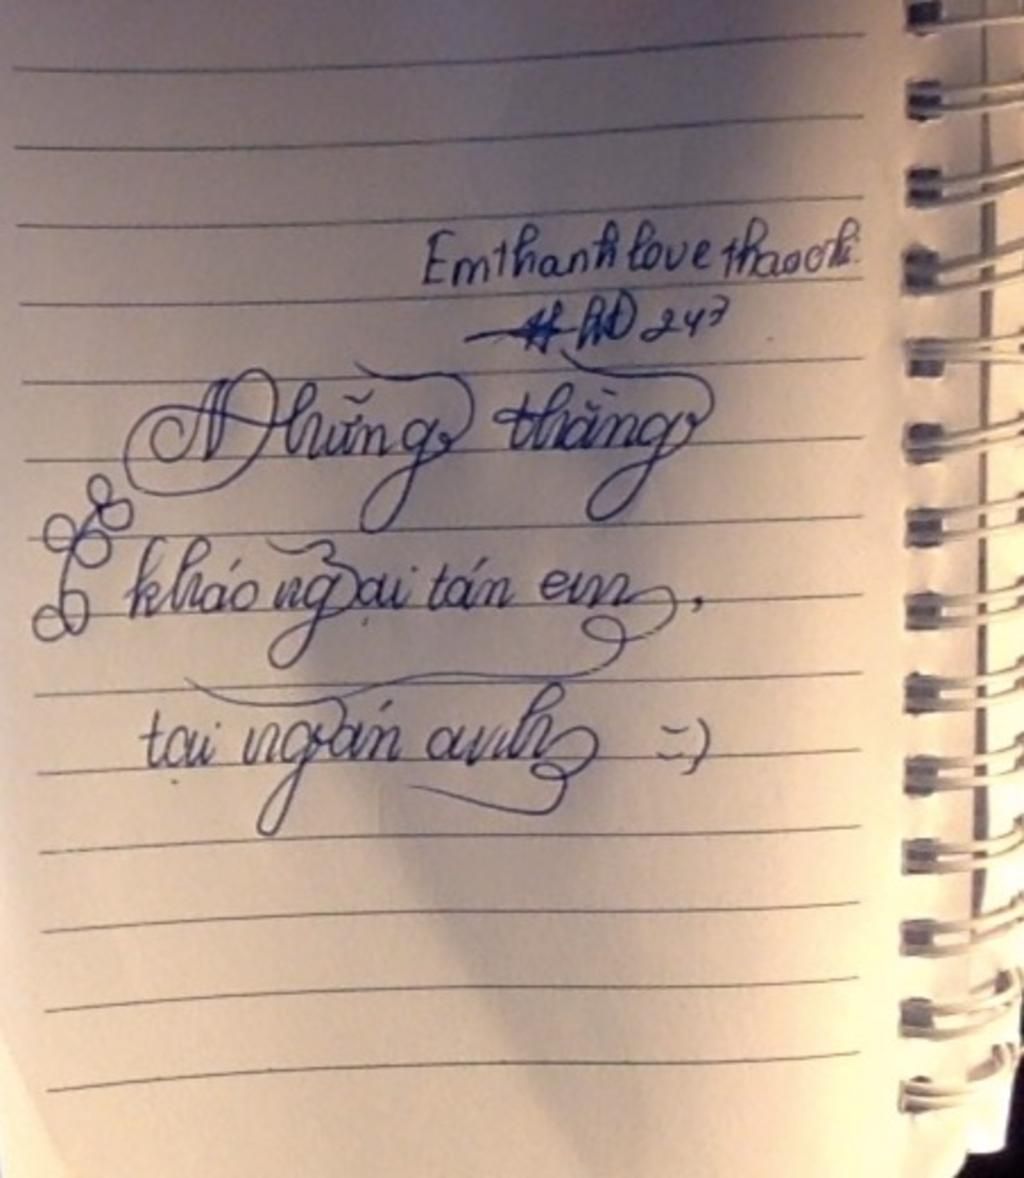 Emthanh love thaooh
HD 243
Những thằng
kháo ngại tán em,
tại ngán anh =)